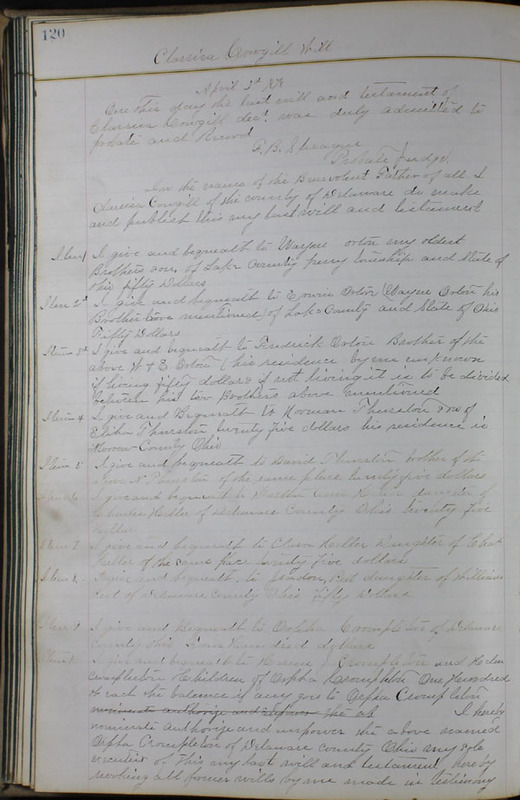 120
Clarissa Cowgill Will
April 3d
One this day the last will and testament of
Clarissa Cowgill decd was duly admitted to
probate and Record
T. B. Sprague
Probate Judge
In the name of the Benevolent Father of all I
Cowgill of the county of Delaware do make
and publish this my last will and testament
Item 1 I give and bequeath to Wayne Orton my oldest
Brothers son, of Lake County Perry township and State of
Ohio fifty Dollars
Item 2d I give and bequeath to Edwin Orton (Wayne Orton his
Brother above mentioned) of Lake County and State of Ohio
Fifty Dollars
Item 3d I give and bequeath to Fredrick Orton Brother of the
above W & E Orton (his residence by me unknown
if living fifty dollars if not living it is to be divided
between his two Brothers above mentioned
Item 4 I give and Bequeath to Norman Thurston son of
Elihu Thurston twenty five dollars his residence is
Morrow County Ohio
Item 5 I give and bequeath to David Thurston brother of the
above N Thurston of the same place twenty five dollars
I give and bequeath to daughter of
of Delaware County Ohio twenty five
dollars
Item 7 I give and bequeath to daughter of
of the same place twenty five dollars
Item 8 I give and bequeath to daughter of William
of Delaware County Ohio fifty Dollars
I give and Bequeath to Crumpleton of Delaware
County Ohio hundred dollars
I give and bequeath to Crumpleton and Helen
Crumpleton children of Orpha Crumpleton One Hundred
each the balance if any goes to Orpha Crumpleton
nominate authorize and the ab I hereby
nominate authorize and impower the above named
Orpha Crumpleton of Delaware county Ohio my sole
executor of this my last will and testament, hereby
revoking all former wills by me made in testimony